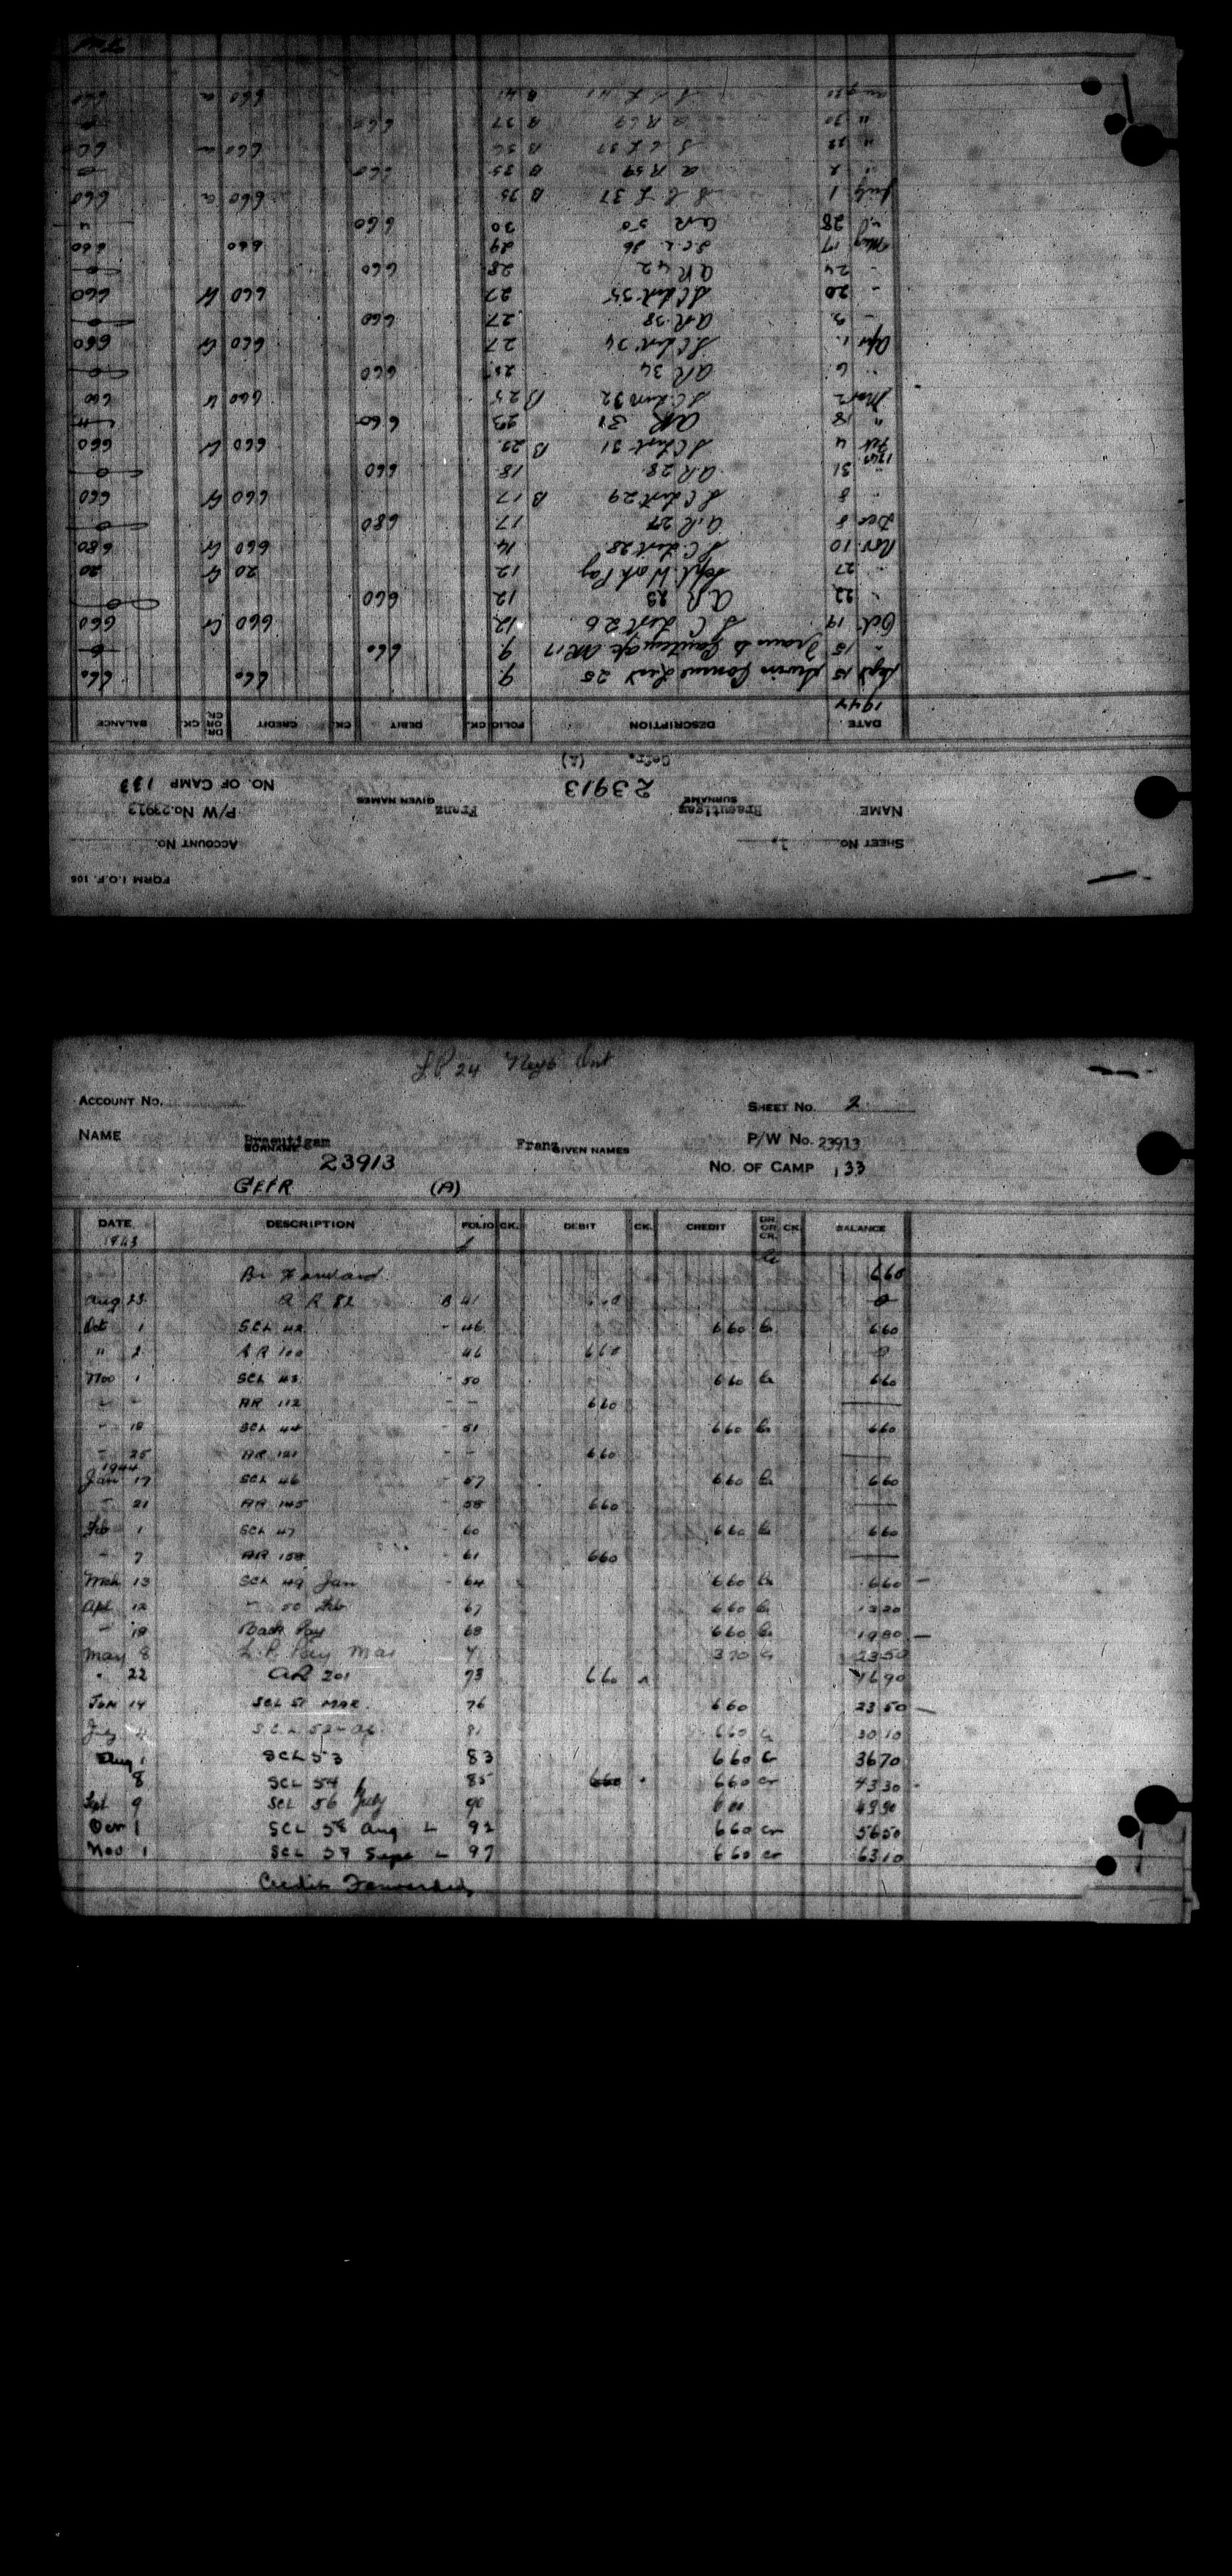 FORM I.O.F. 106
SHEET No. 1. ACCOUNT No.
NAME Braeutigam SURNAME Franz GIVEN NAMES P/W No. 23913
23913 NO. OF CAMP 133
Gefr. (A)
DATE DESCRIPTION FOLIO CK. DEBIT CK. CREDIT DR. OR CR. CK. BALANCE
Sept 15 25 9 660 660
" 15 AR 17 9 660 0
Oct 19 S C List 26 12 660 Cr 660
" 22 A R 23 12 660 0
" 27 Sept. Work Pay 12 20 Cr 20
Nov. 10 S C List 28 14 660 Cr 680
Dec 8 A.R. 27 17 680 0
" 8 S C List 29 B 17 660 Cr 660
" 31 A R 28 18 660 0
1943
Feb 4 S C List 31 B 22 660 Cr 660
" 18 AR 31 23 660
Mar 2 S C 32 B 25 660 Cr 660
" 6 AR 34 25 660 0
Apr 1 S C List 34 27 660 Cr 660
- 3 A.R. 38 27 660 0
- 20 S C List 35 27 660 Cr 660
- 24 AR 42 28 660 0
May 17 S.C.L 36 29 660 660
28 AR 50 30 660
July 1 S C L 37 B 35 660 660
" 2 A R 59 B 35 660 0
" 22 S C L B 36 660 660
" 30 A R 69 B 37 660
Aug S C L B 41 660 660
L.P 24 Neys Ont
ACCOUNT No. SHEET No. 2
NAME Braeutigam SURNAME Franz GIVEN NAMES P/W No. 23913
23913 NO. OF CAMP 133
GEFR (A)
DATE DESCRIPTION FOLIO CK. DEBIT CK. CREDIT DR. OR CR. CK. BALANCE
1943
Br Forward 660
Aug 23 A R 82 B 41 660 0
Oct 1 SCL 42 - 46 660 Cr 660
" 2 AR 100 46 660 0
Nov 1 SCL 43 - 50 660 Cr 660
- - AR 112 - - 660
- 18 SCL 44 - 51 660 Cr 660
- 25 AR 121 - - 660
1944
Jan 17 SCL 46 - 57 660 Cr 660
- 21 AR 145 - 58 660
Feb 1 SCL 47 - 60 660 Cr 660
- 7 AR 158 - 61 660
Mch 13 SCL 49 Jan - 64 660 Cr 660
Apl 12 - 50 Feb 67 660 Cr 1320
- 19 Back Pay 68 660 Cr 1980
May 8 Pay Mar 370 Cr 2350
" 22 AR 201 73 660 1690
Jun 14 SCL 51 MAR. 76 660 2350
July 4 S.C.L. 52 - Ap. 81 660 Cr 3010
Aug 1 SCL 53 83 660 Cr 3670
8 SCL 54 85 660 660 Cr 4330
Sept 9 SCL 56 July 90 660 4990
Oct 1 SCL 58 Aug 92 660 Cr 5650
Nov 1 SCL 59 Sept 97 660 Cr 6310
Credit Forwarded